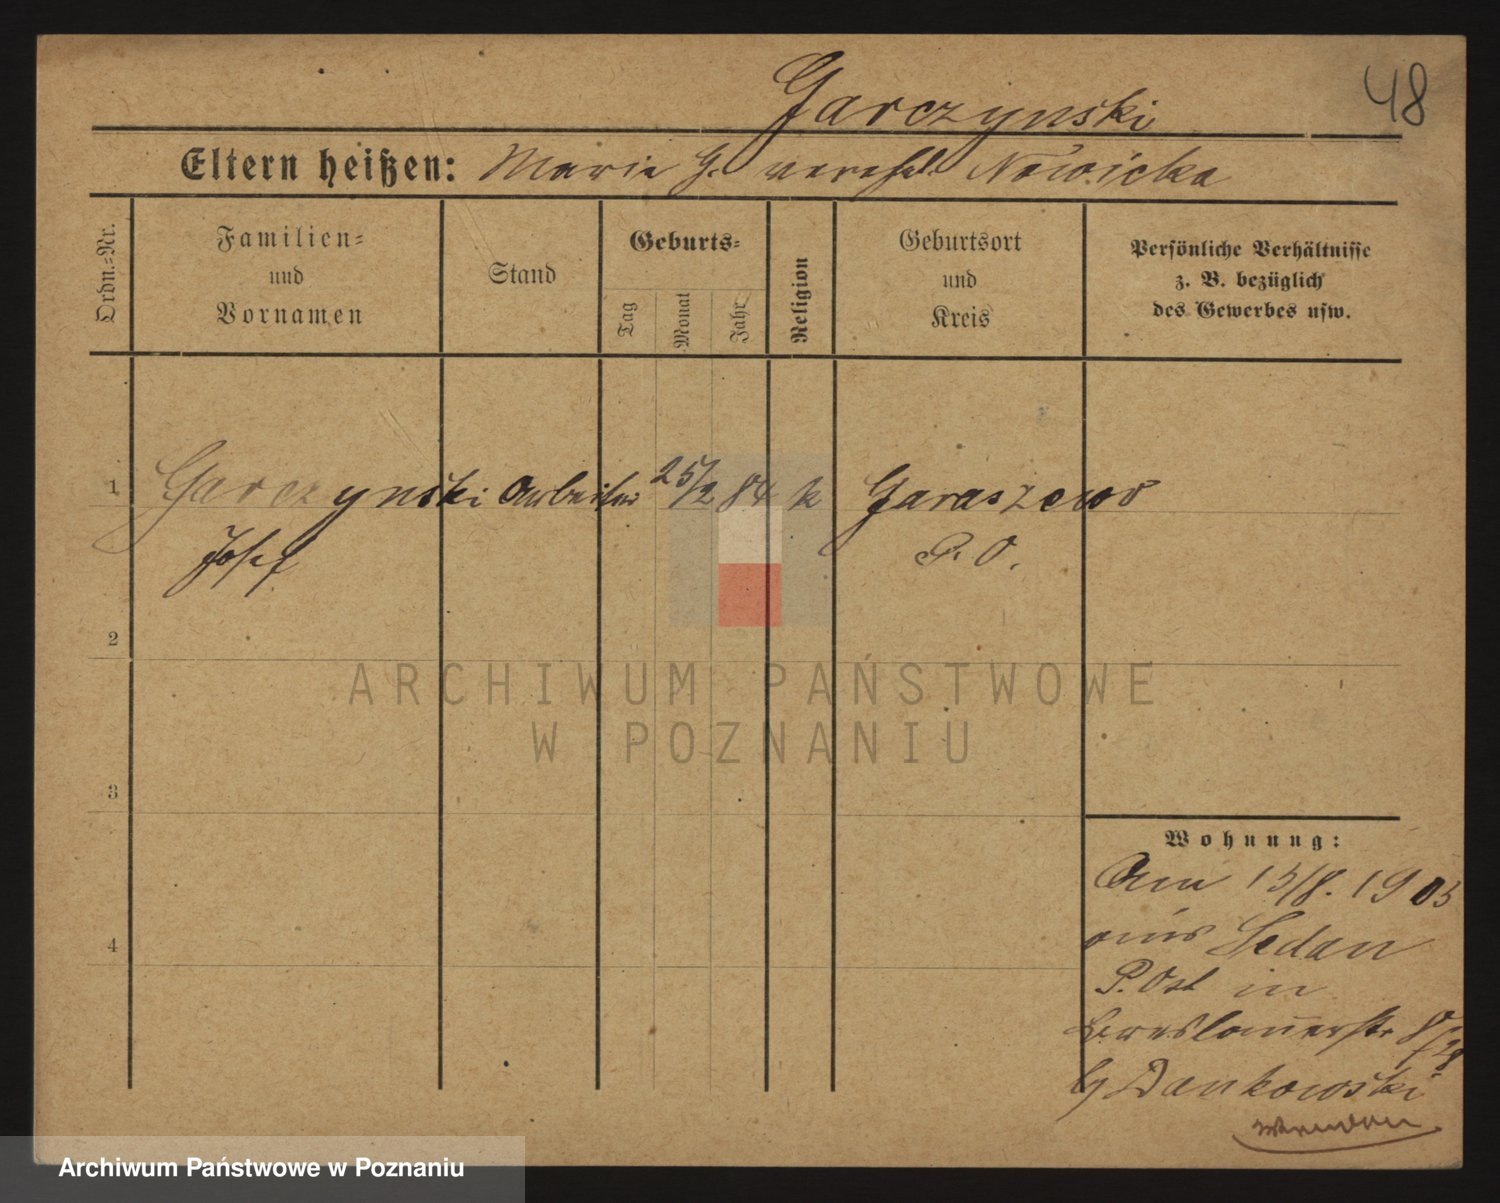 48
Garczynski
Eltern heißen: Marie G. verehl. Nowicka
Ordn.-Nr.
Familien-
und
Vornamen
Stand
Geburts-
Tag
Monat
Jahr
Religion
Geburtsort
und
Kreis
Persönliche Verhältnisse
z. B. bezüglich
des Gewerbes usw.
1 Garczynski Arbeiter 25/2 84 k Garaszewo
Josef P. O.
2
ARCHIWUM PAŃSTWOWE
W POZNANIU
3
Wohnung:
Am 15/8. 1905
aus Sedan
P. Ost in
Breslauerstr
4
b/ Dankowski
Archiwum Państwowe w Poznaniu